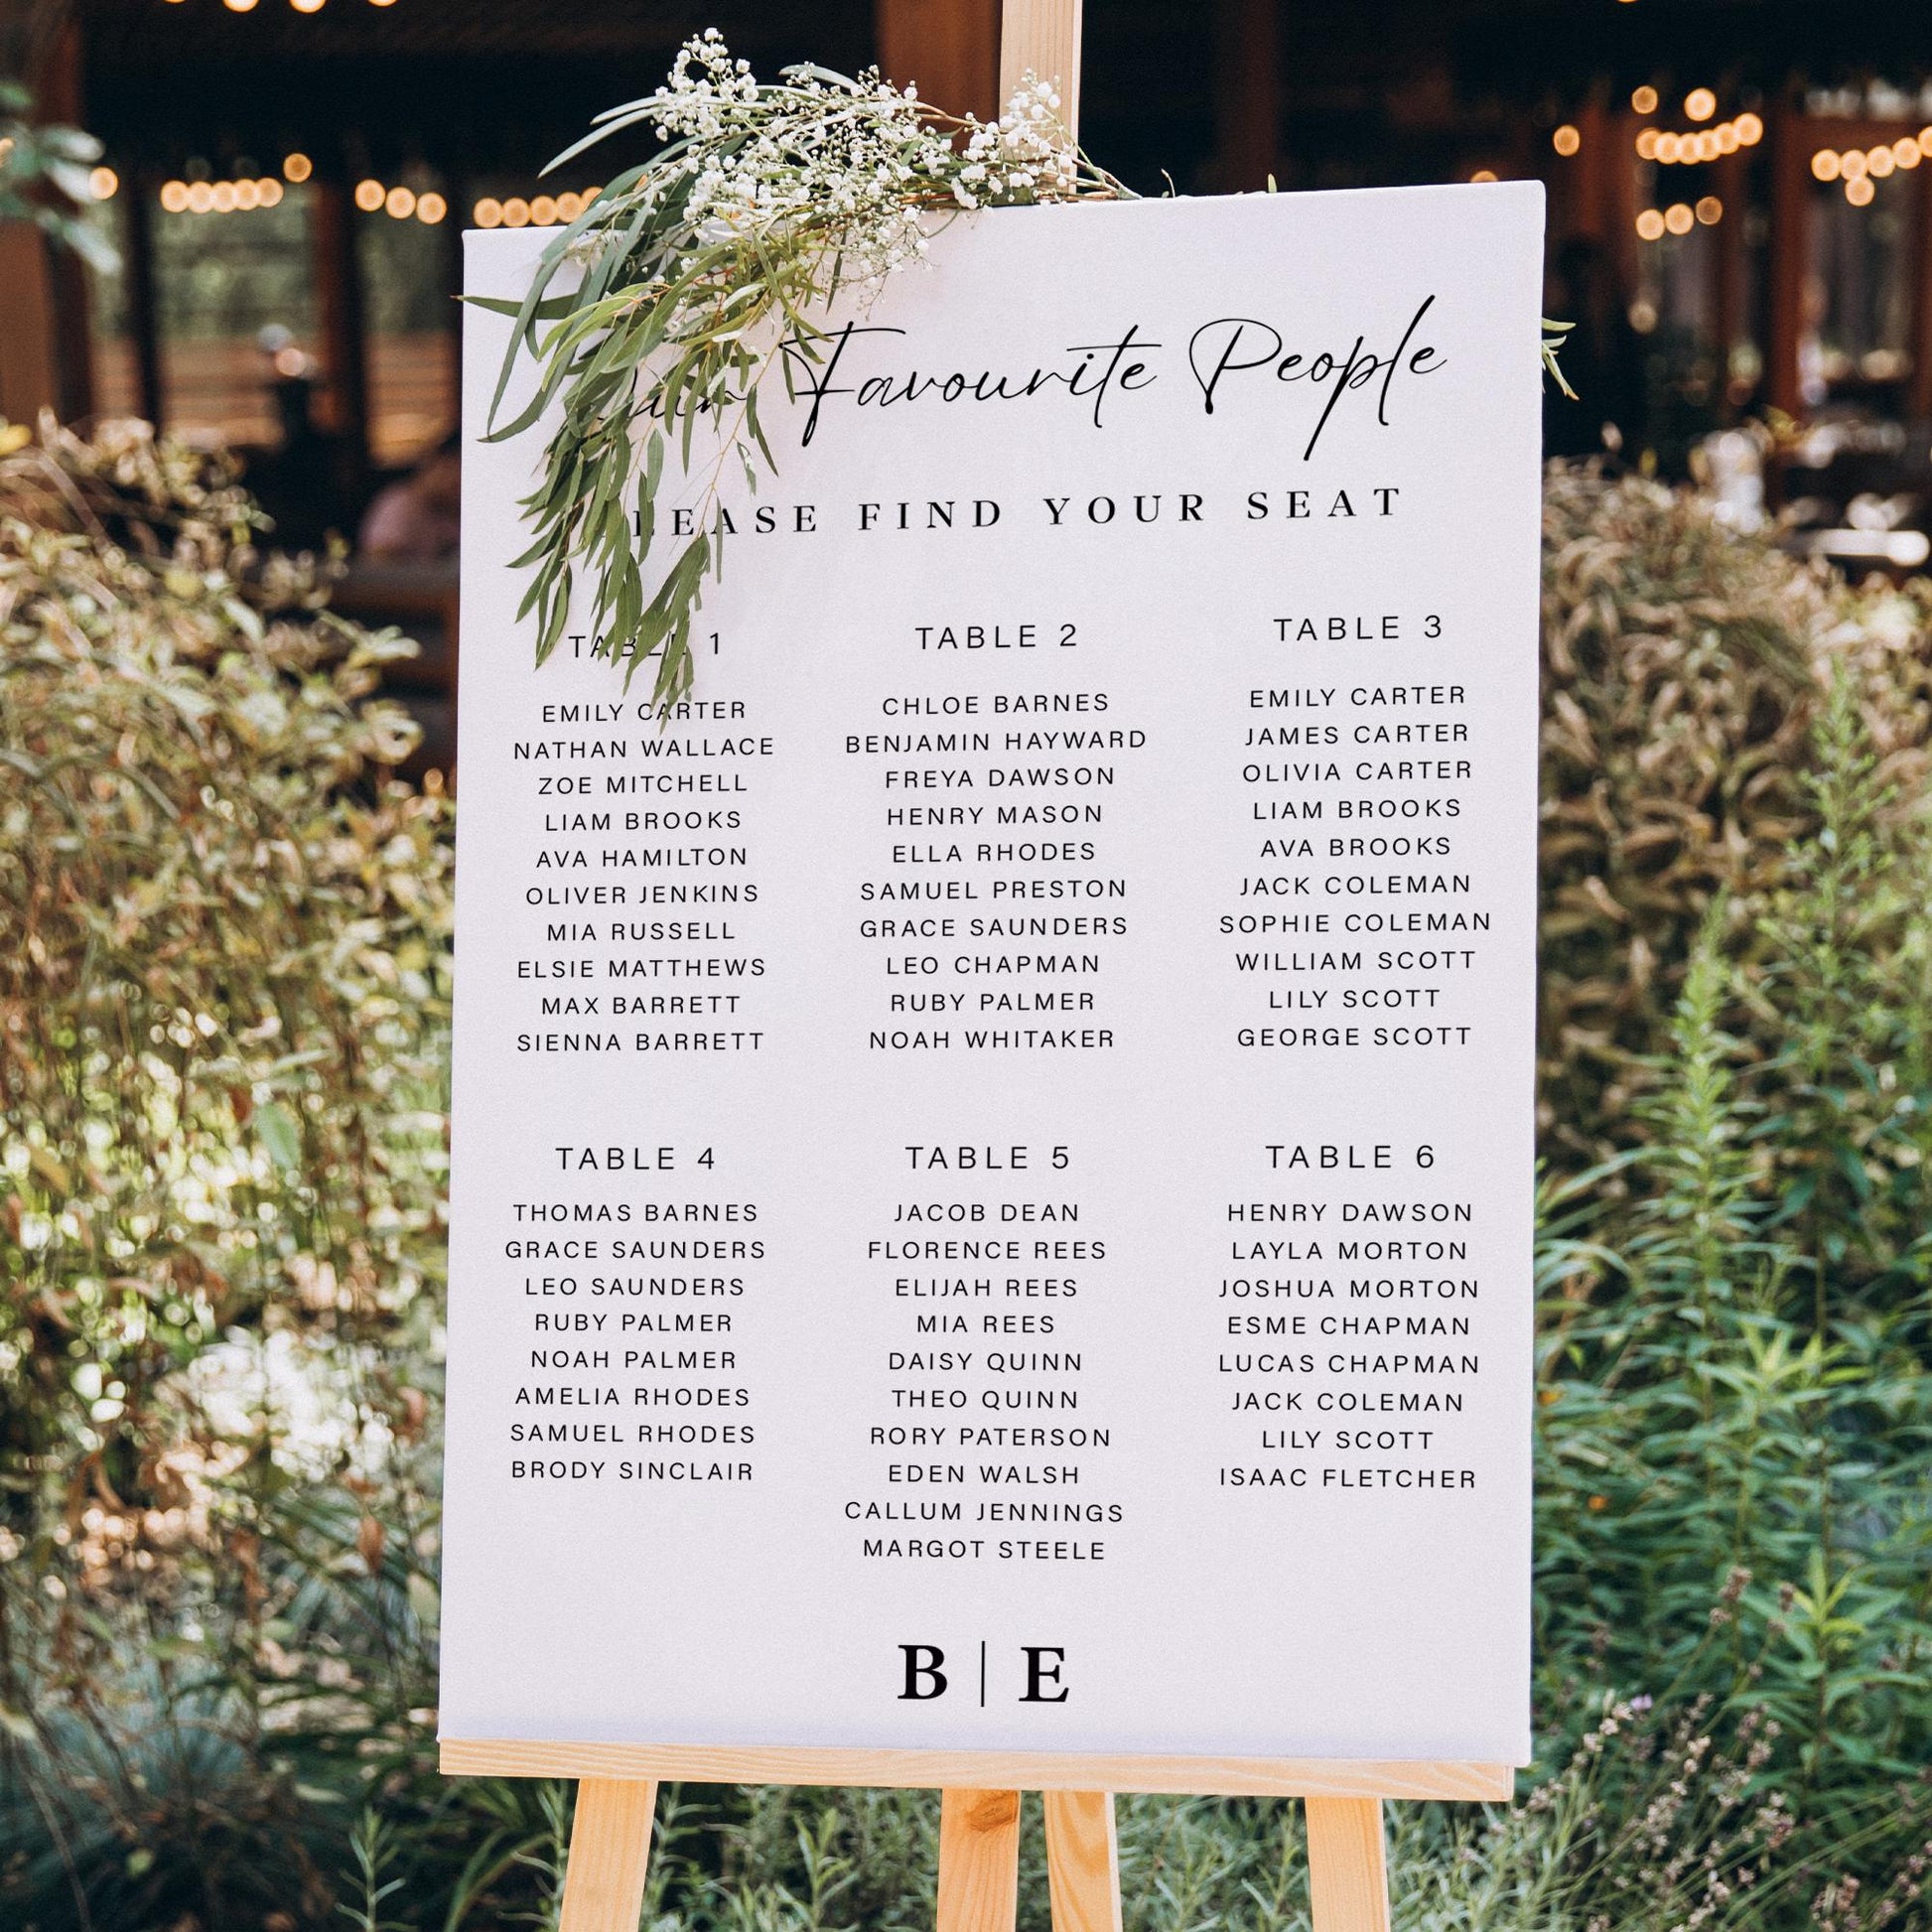 Our Favourite People
PLEASE FIND YOUR SEAT
TABLE 1
EMILY CARTER
NATHAN WALLACE
ZOE MITCHELL
LIAM BROOKS
AVA HAMILTON
OLIVER JENKINS
MIA RUSSELL
ELSIE MATTHEWS
MAX BARRETT
SIENNA BARRETT
TABLE 2
CHLOE BARNES
BENJAMIN HAYWARD
FREYA DAWSON
HENRY MASON
ELLA RHODES
SAMUEL PRESTON
GRACE SAUNDERS
LEO CHAPMAN
RUBY PALMER
NOAH WHITAKER
TABLE 3
EMILY CARTER
JAMES CARTER
OLIVIA CARTER
LIAM BROOKS
AVA BROOKS
JACK COLEMAN
SOPHIE COLEMAN
WILLIAM SCOTT
LILY SCOTT
GEORGE SCOTT
TABLE 4
THOMAS BARNES
GRACE SAUNDERS
LEO SAUNDERS
RUBY PALMER
NOAH PALMER
AMELIA RHODES
SAMUEL RHODES
BRODY SINCLAIR
TABLE 5
JACOB DEAN
FLORENCE REES
ELIJAH REES
MIA REES
DAISY QUINN
THEO QUINN
RORY PATERSON
EDEN WALSH
CALLUM JENNINGS
MARGOT STEELE
TABLE 6
HENRY DAWSON
LAYLA MORTON
JOSHUA MORTON
ESME CHAPMAN
LUCAS CHAPMAN
JACK COLEMAN
LILY SCOTT
ISAAC FLETCHER
B | E